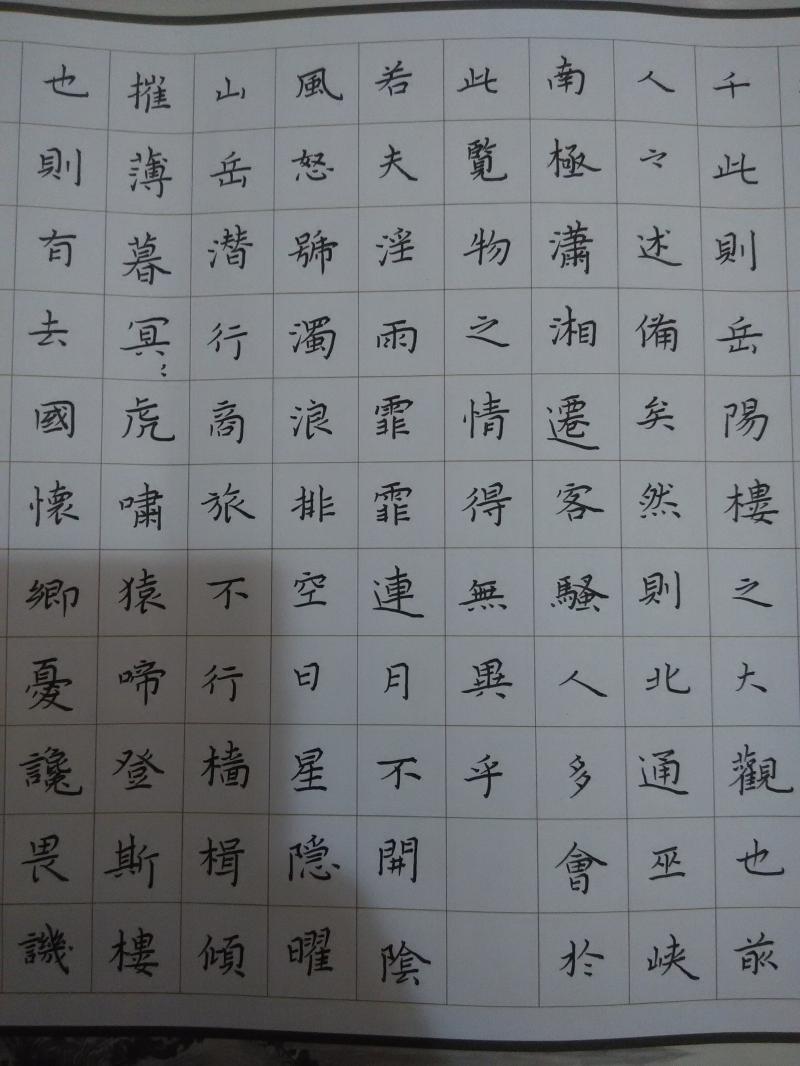 千此則岳陽樓之大觀也前
人之述備矣然則北通巫峽
南極瀟湘遷客騷人多會於
此覽物之情得無異乎
若夫淫雨霏霏連月不開陰
風怒號濁浪排空日星隱曜
山岳潜行商旅不行檣楫傾
摧薄暮冥〻虎嘯猿啼登斯樓
也則有去國懷鄉憂讒畏譏